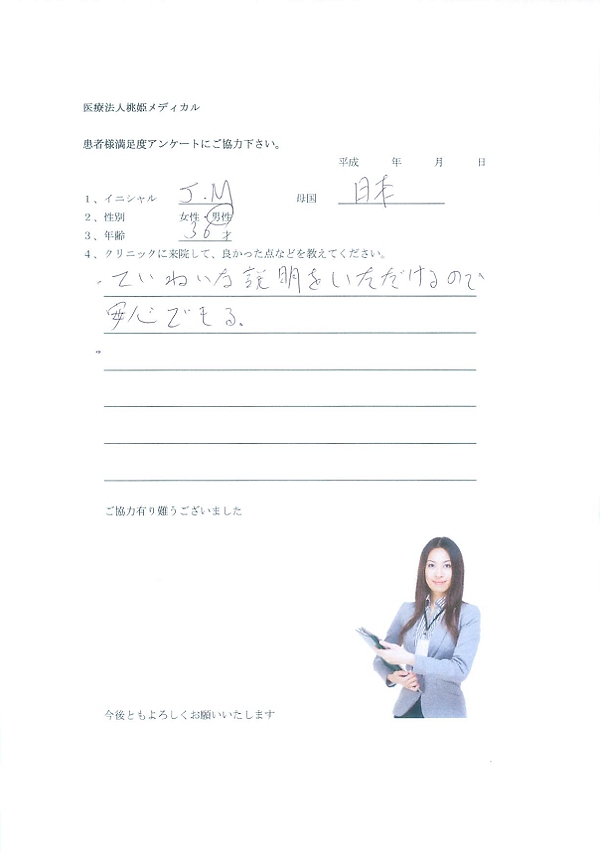 医療法人桃姫メディカル
患者様満足度アンケートにご協力下さい。
平成 年 月 日
1、イニシャル J.M 母国 日本
2、性別 女性・男性
3、年齢 36才
4、クリニックに来院して、良かった点などを教えてください。
・ていねいな説明をいただけるので
安心できる。
ご協力有り難うございました
今後ともよろしくお願いいたします